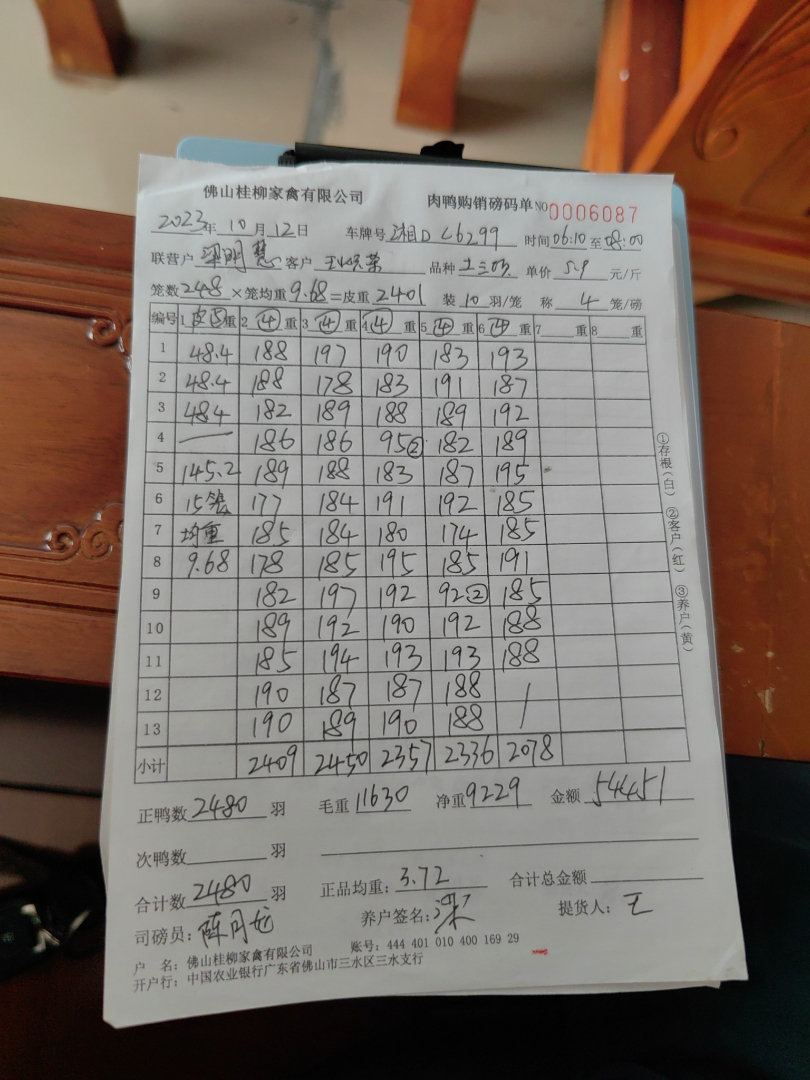 佛山桂柳家禽有限公司 肉鸭购销磅码单 NO 0006087
2023年10月12日 车牌号 湘D L6299 时间 06:10 至 08:00
联营户 梁明慧 客户 荣 品种 土三 单价 5.9 元/斤
笼数 248 ×笼均重 9.68 =皮重 2401 装 10 羽/笼 称 4 笼/磅
编号 1 皮重 2 ④ 重 3 ④ 重 4 ④ 重 5 ④ 重 6 ④ 重 7 重 8 重
1 48.4 188 197 190 183 193
2 48.4 188 178 183 191 187
3 484 182 189 188 189 192
4 — 186 186 95② 182 189
5 145.2 189 188 183 187 195
6 15笼 177 184 191 192 185
7 均重 185 184 180 174 185
8 9.68 178 185 195 185 191
9 182 197 192 92② 185
10 189 192 190 192 188
11 185 194 193 193 188
12 190 187 187 188 /
13 190 189 190 188 /
小计 2409 2450 2357 2336 2078
正鸭数 2480 羽 毛重 11630 净重 9229 金额 54451
次鸭数 羽
合计数 2480 羽 正品均重: 3.72 合计总金额
司磅员: 陈月龙 养户签名: 梁 提货人: 王
户 名: 佛山桂柳家禽有限公司 账号: 444 401 010 400 169 29
开户行: 中国农业银行广东省佛山市三水区三水支行
①存根(白) ②客户(红) ③养户(黄)